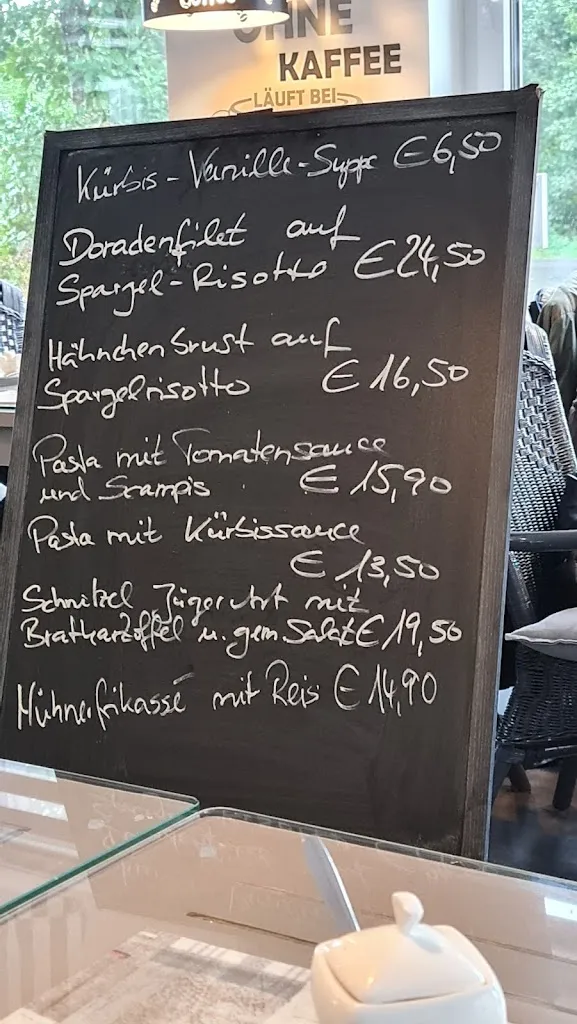 OHNE
KAFFEE
LÄUFT BEI
Kürbis-Vanille-Suppe €6,50
Doradenfilet auf
Spargel-Risotto €24,50
Hähnchenbrust auf
Spargelrisotto € 16,50
Pasta mit Tomatensauce
und Scampis € 15,90
Pasta mit Kürbissauce
€ 13,50
Schnitzel Jäger Art mit
Bratkartoffel u. gem Salat € 19,50
Hühnerfrikassé mit Reis € 14,90